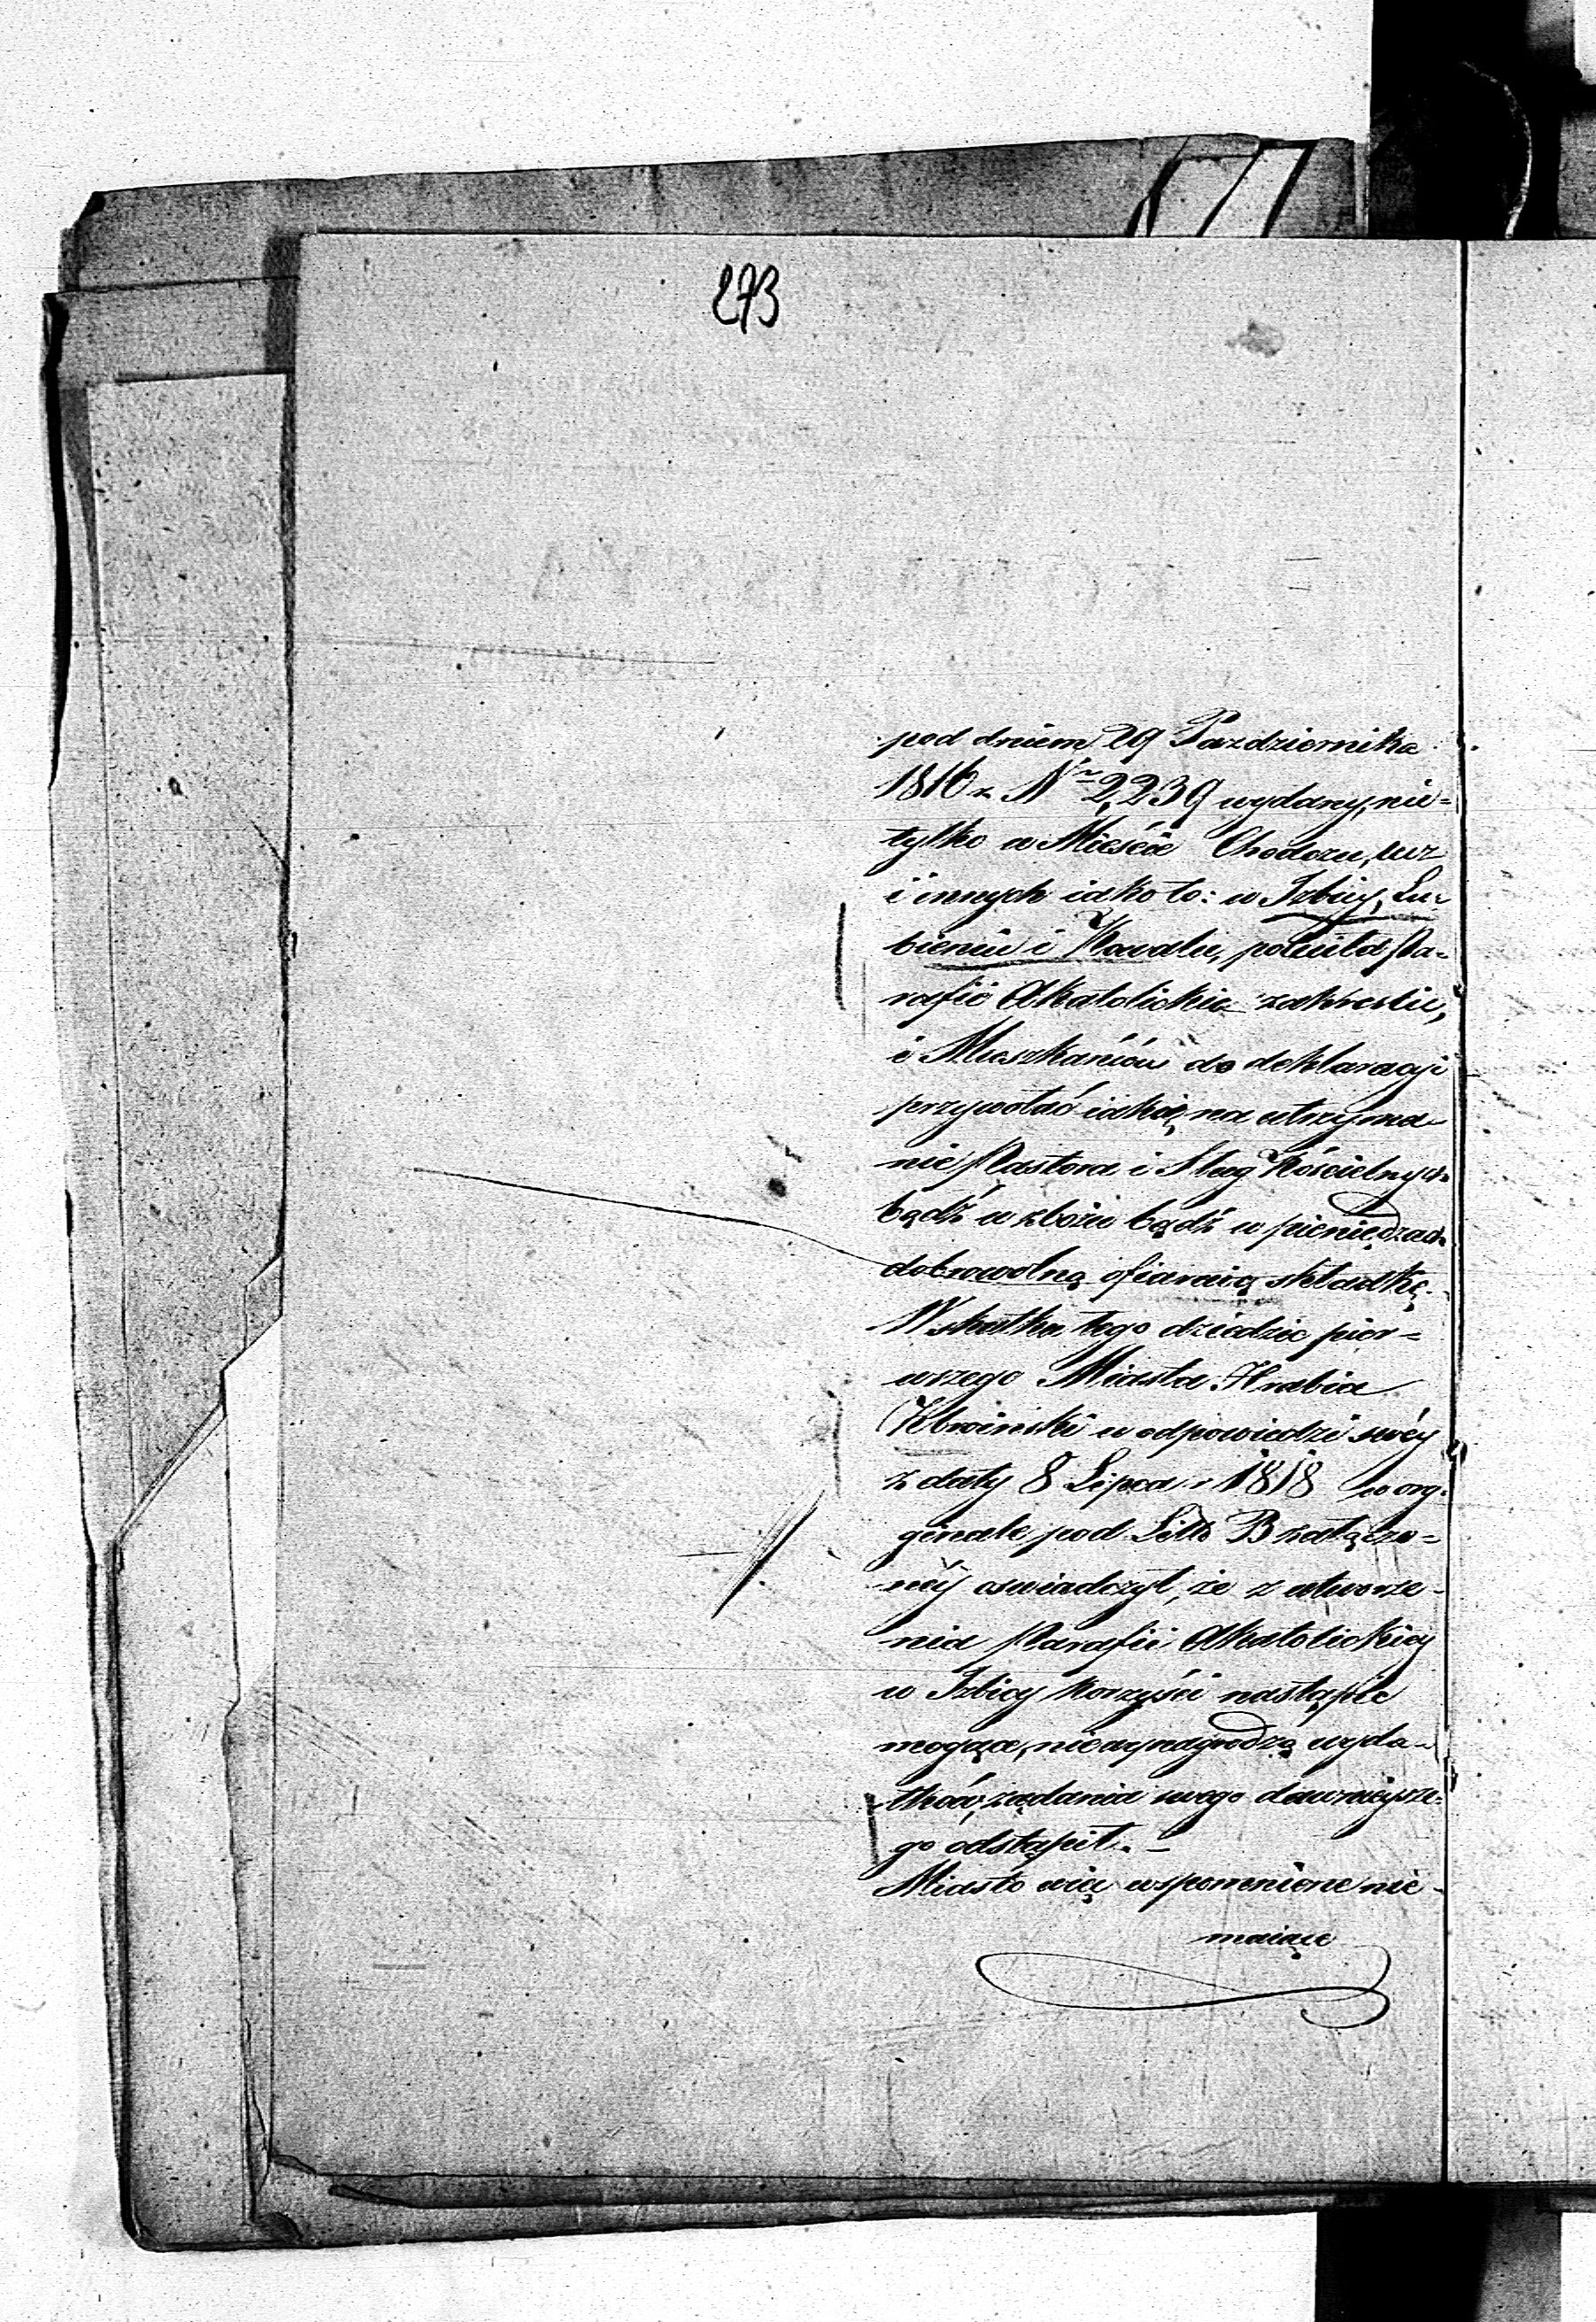 273
pod dniem 29 Pazdziernika
1816 r. Nr 2,239 wydany, nie=
tylko w Mieście Chodczu, lecz
i innych iako to: w Izbicy, Lu=
bieniu i Kowalu, poleciła Pa=
rafie Akatolickie zakreślić,
i Mieszkańców do deklaracyi
przywołać iaką na utrzyma=
nie Pastora i Sług Kościelnych
bądź w zbożu bądź w pieniędzach
dobrowolną ofiaruią składkę.
W skutku tego dziedzic pier=
wszego Miasta Hrabia
w odpowiedzi swéy
z daty 8 Lipca r 1818 w ory=
ginale pod Litt B załączo=
néy oswiadczył, że z utworze=
nia Parafii Akatolickiey
w Izbicy korzyści nastąpić
mogące, niewynagrodzą wyda=
tków, żądania swego dawnieysze=
go odstąpił. –
Miasto więc wspomnione nie=
maiące